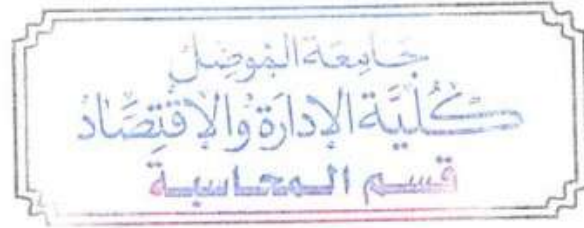 جَامِعَة المَوصِل
كُليَّة الإدارَة وَالإقْتِصَاد
قسم المحاسبة